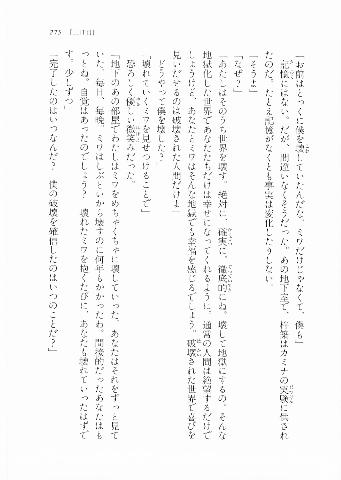 275　［二十日］
「お前はとっくに僕を壊していたんだな。ミワだけじゃなくて、僕も」
　記憶にはない。だが、間違いなくそうだった。あの地下室で、梓馬はカミナの実験に供され
たのだ。たとえ記憶がなくとも事実は変化したりしない。
「そうよ」
「なぜ？」
「あなたはそのうち世界を壊す。絶対に、確実に、徹底的にね。壊して地獄にするの。そんな
地獄化した世界であなたたちだけは幸せになってくれるように。通常の人間は絶望するだけで
しょうけど、あなたとミワはそんな地獄でも幸福を感じるでしょう。破壊された世界で喜びを
見いだせるのは破壊された人間だけよ」
「どうやって僕を壊した？」
「壊れていくミワを見せつけることで」
　恐ろしく優しい微笑みだった。
「地下のあの部屋でわたしはミワをめちゃくちゃに壊していった。あなたはそれをずっと見て
いた。毎日、毎晩。ミワはしぶといから壊すのに何年もかかったわね。間接的だったあなたはも
っとね。自覚はあったのでしょう？　壊れたミワを抱くたびに、あなたも壊れていったはずで
す。少しずつ」
「完了したのはいつなんだ？　僕の破壊を確信したのはいつのことだ？」